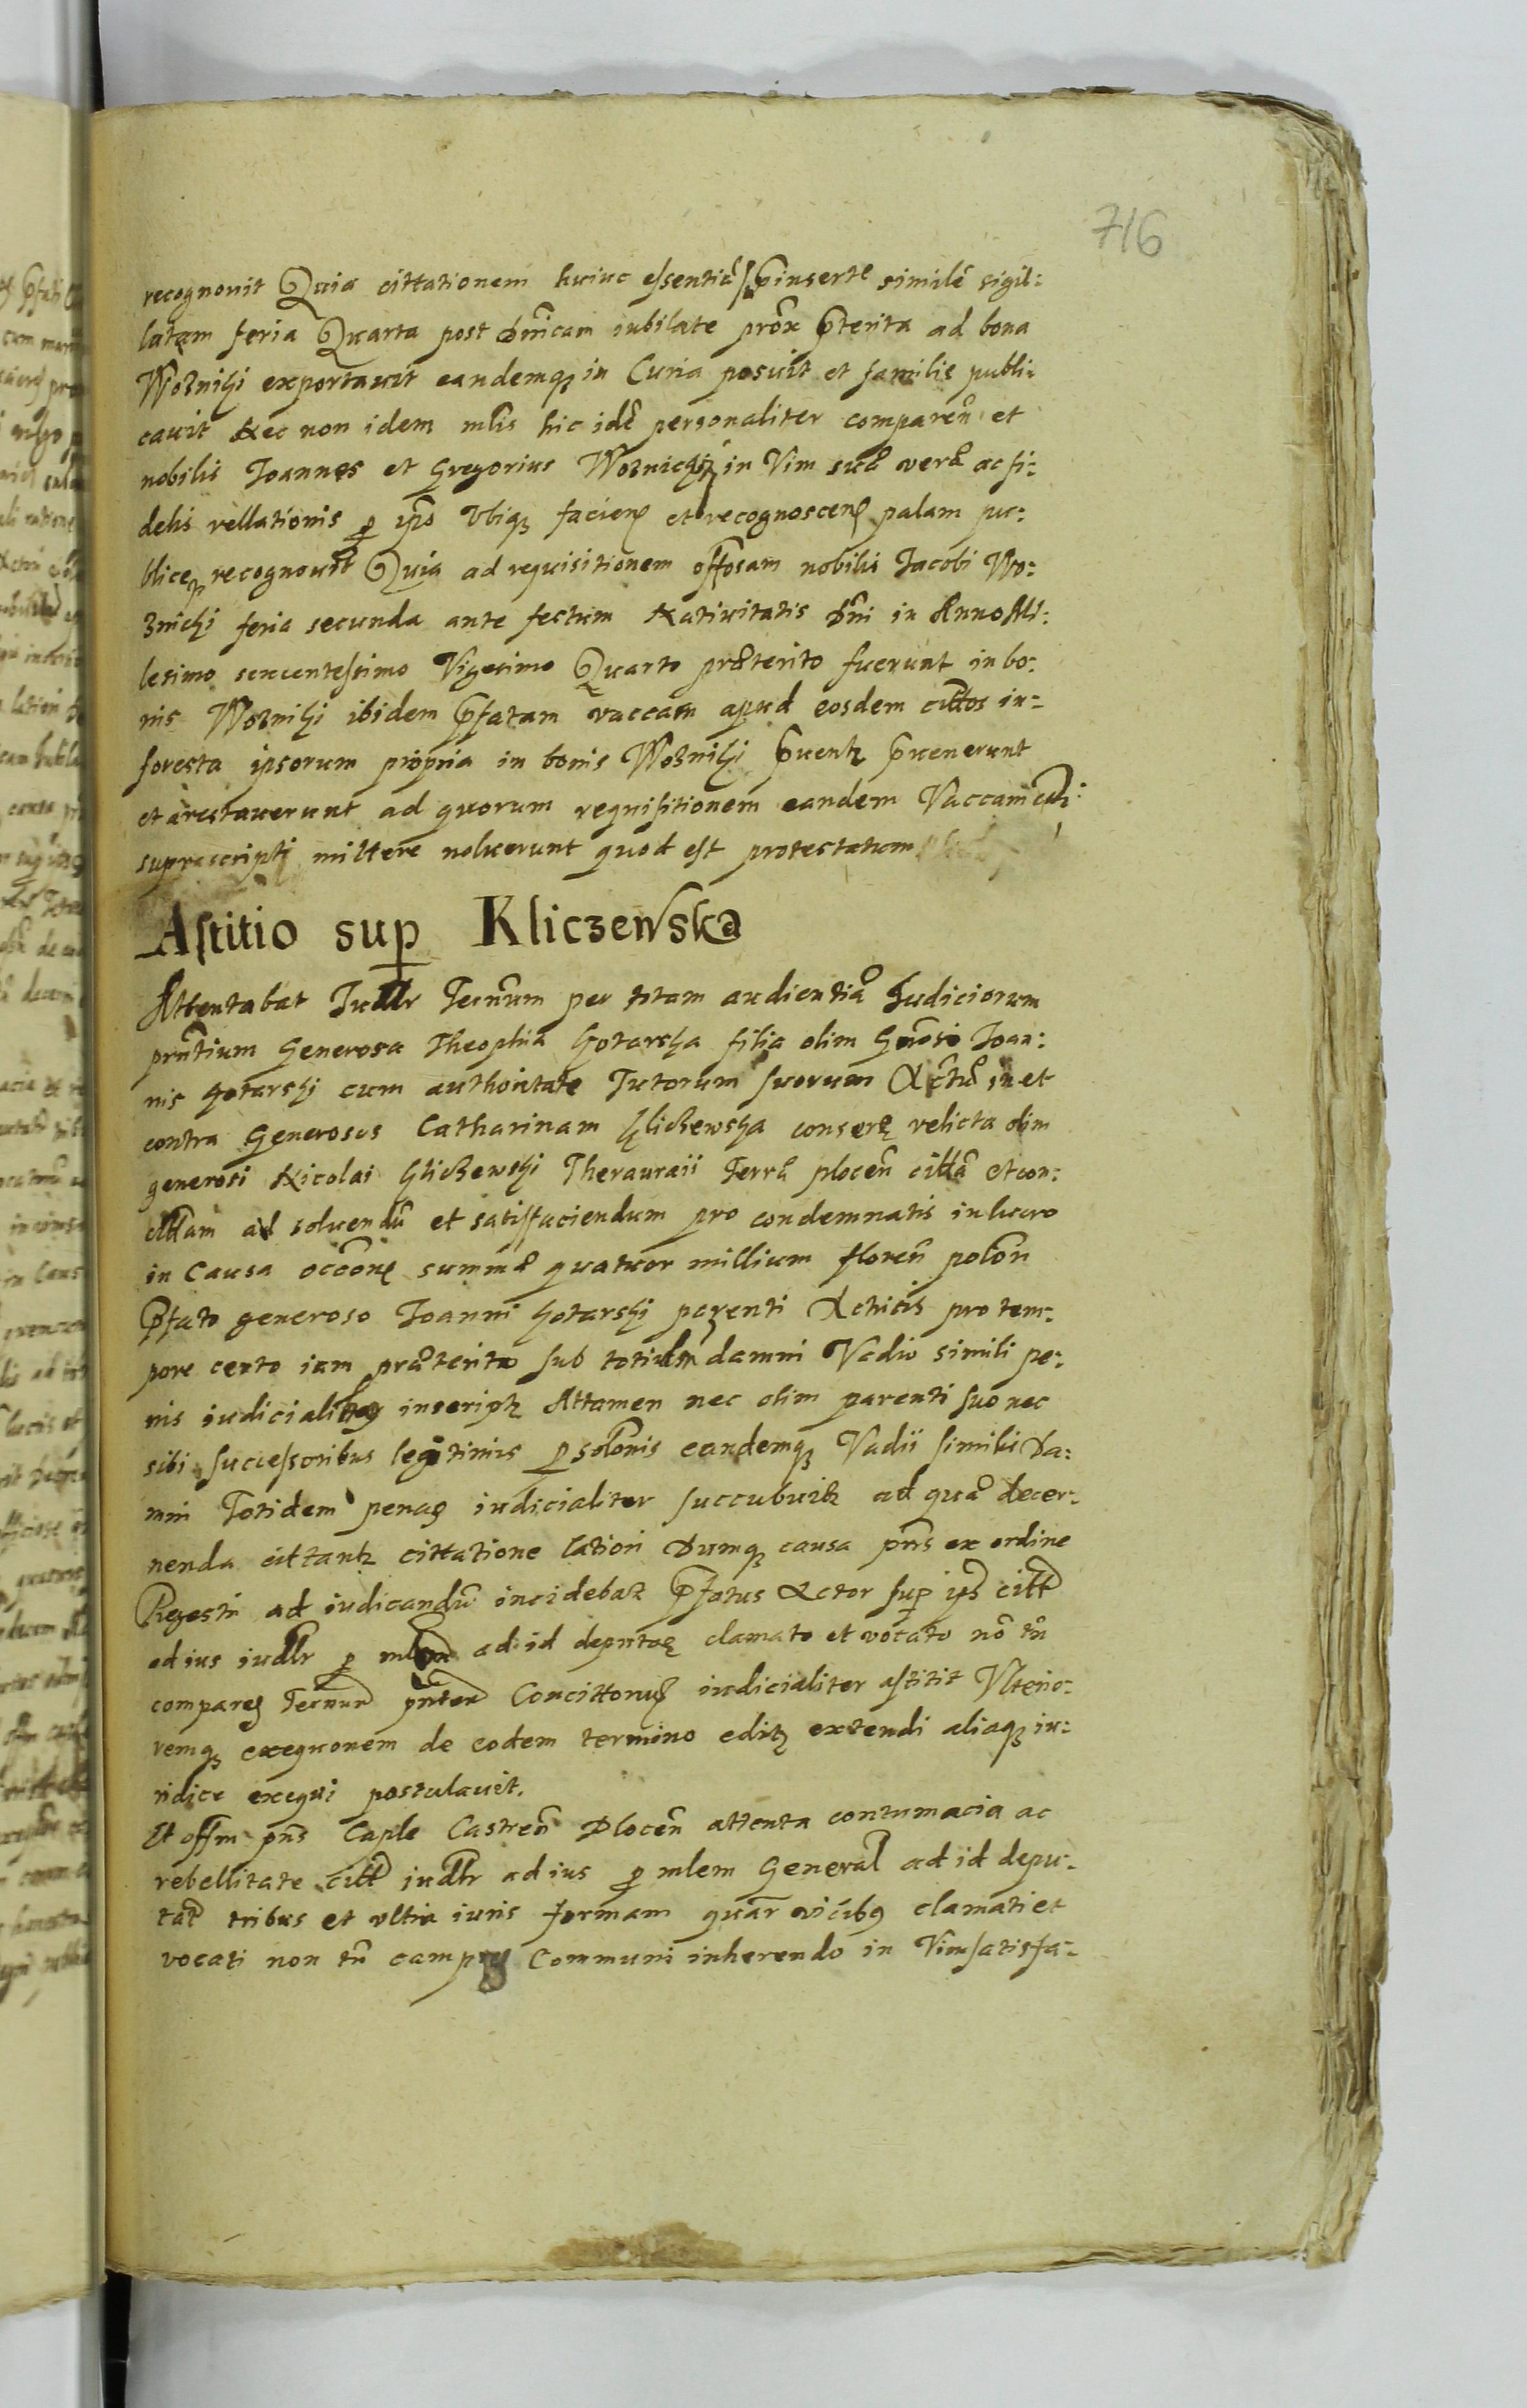 716
recognouit Quia cittationem huius essentiae p̄inserte similē sigil:
latam feria Quarta post dm̄icam iubilate prox̄ p̄terita ad bona
Woznihi exportauit eandemq; in Curia posuit et familie publi:
cauit Nec non idem mlis hic idē personaliter comparen̄ et
nobilis Joannes et Gregorius Woznichi in Vim suae verae ac fi:
delis rellationis p ipō Vbiq; facien̄ et recognoscen̄ palam pu:
blice recognouit Quia ad requisitionem offosam nobilis Jacobi Wo:
znichi feria secunda ante festum Natiuitatis dn̄i in Anno Mi:
lesimo sexcentessimo Vigesimo Quarto praeterito fuerunt in bo:
nis Woznihi ibidem p̄fatam vaccam apud eosdem citt̄os in-
foresta ipsorum propria in bonis Woznihi p̄uent p̄uenerunt
et arestauerunt ad quorum requisitionem eandem Vaccam citti
suprascripti mittere noluerunt quod est protestatum
Astitio sup Kliczewska
Attentabat Judlr Termm per totam audientiā Judiciorum
pn̄tium Generosa Theophia Gotarska filia olim Gn̄osi Joan:
nis Gotarski cum authoritate Tutorum suorum Actrix in et
contra Generosus Catharinam Kliczewska consorte relicta olim
generosi Nicolai Kliczewski Thesauraii Terrae plocen̄ citt̄a et con:
citt̄am ad soluendū et satisfaciendum pro condemnatis in lucro
in Causa occōne summae quatuor millium floren̄ polōn
p̄fato generoso Joanni Gotarski parenti Actricis pro tem:
pore certo iam praeterito sub totidem damni Vadio simili pe:
nis iudicialiter inscript Attamen nec olim parenti suo nec
sibi successoribus legitimis p solōnis eandemq; Vadii similis Da:
mni Totidem penas iudicialiter succubuit ad quae decer:
nenda cittant cittatione latiori Dumq; causa pn̄s ex ordine
Regestri ad iudicandū incidebat p̄fatus Actor sup ips citt
ad ius iudlr p mlem ad id deputae clamato et vocato nō tn̄
compares Termm pn̄tem Concittonus iudicialiter astitit Vlterio:
remq; exequonem de eodem termino edit extendi aliaq; iu:
ridice exequi postulauit.
Et offm pn̄s Caple Castren̄ Plocen̄ attenta contumacia ac
rebellitate citt iudlr ad ius p mlem General ad id depu:
tat tribus et vltra iuris formam quar vicibq clamati et
vocati non tn̄ Communi inherendo in Vim satisfa-